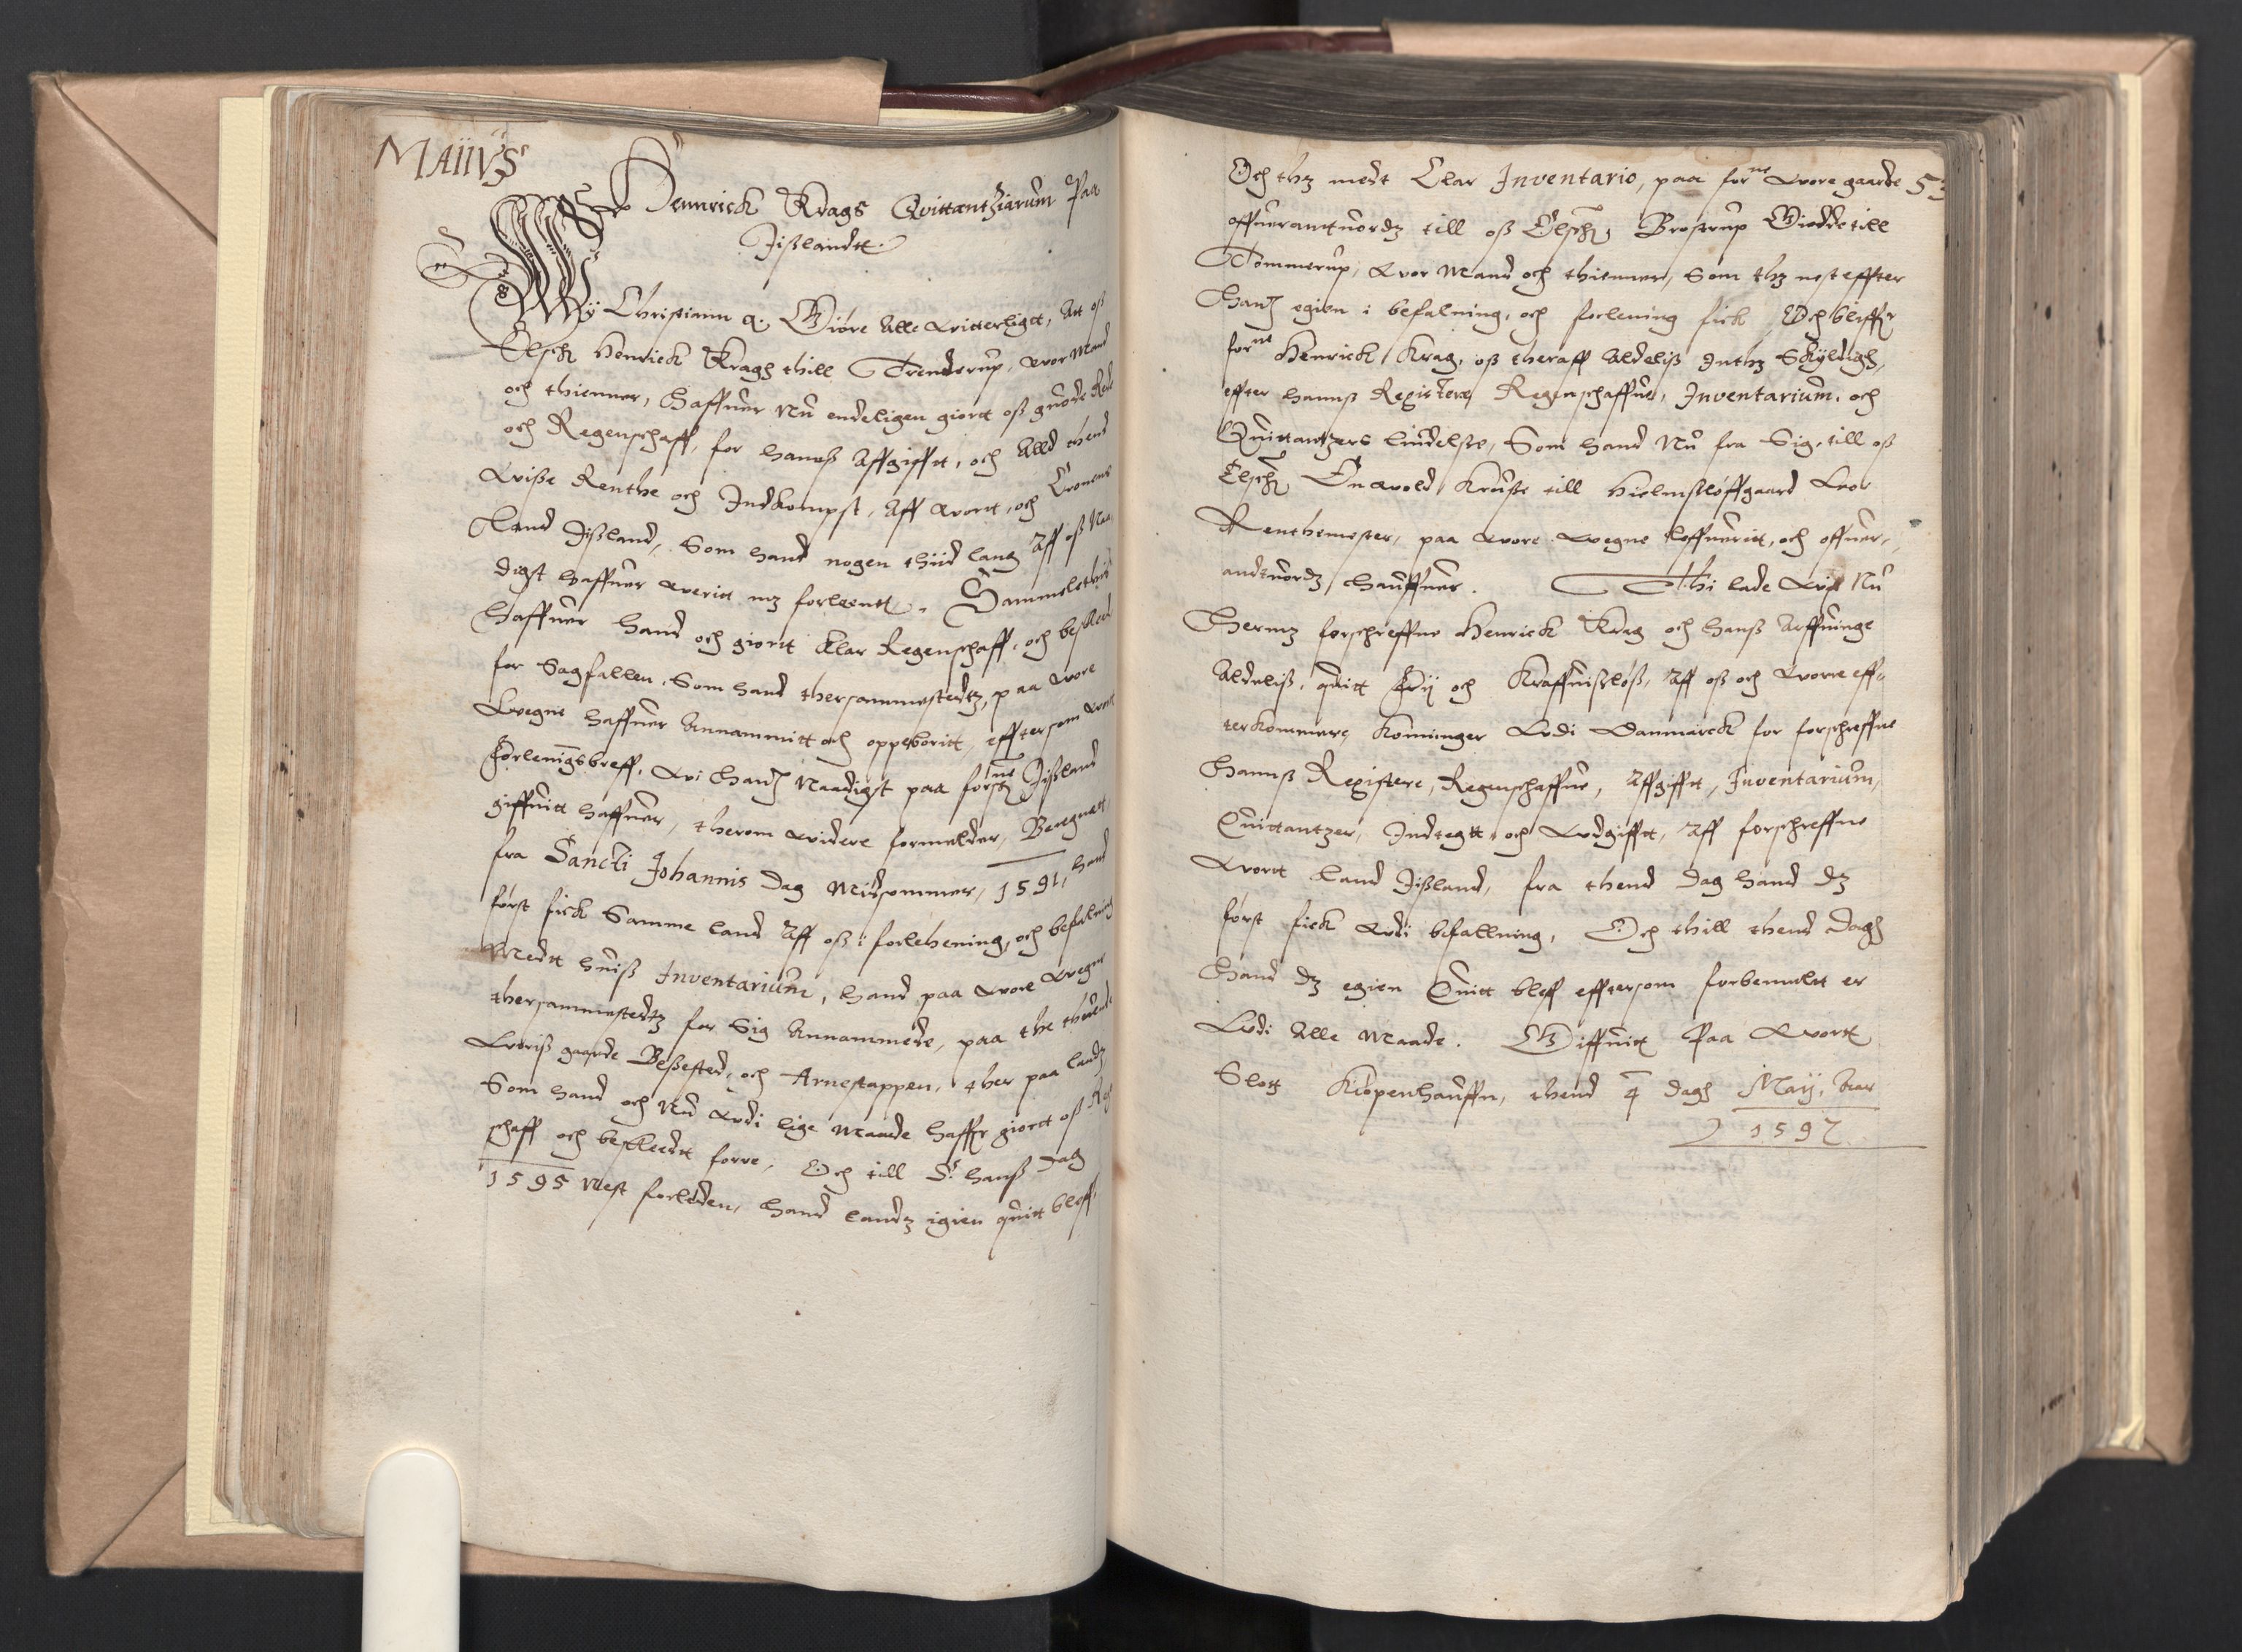 MAIIVS
Hennrick Krags Qvittantziarum Paa
Jißlandtt.
Wÿ Christiann 4. Giøre Alle witterligtt, Att oß
Elsch: Henrick Kragh thill Trenderup, wor Mand
och thienner, Haffuer Nu endeligen giortt oß guode Rede
och Regenschaff, for hanns Affgifftt, och Alld thend
Wisse Renthe och Indkompst, Aff wortt, och Cronens
Land Jißland, Som hand nogen thiid lang Aff oß Naa,
digst haffuer werritt mz forleentt. Sammeledtz
Haffuer Hand och giortt klar Regenschaff, och beskeed
for Sagfallen, Som hand thersammestedtz, paa wore
Wegne haffuer Annammitt och oppeborritt, efftersom wortt
Forleningsbreff, wi Hanʒ Naadigst paa forschne Jißland
giffuitt haffuer, therom widere formelder, Beregnett
fra Sancti Johannis Dag Midsommer, 1591, hand
først fick Samme land Aff oß i forlehening, och befalning
Medtt huiß Inventarium, hand paa wore wegne
thersammestedtz for Sig Annammede, paa the thuende
Worriß gaarde Beßested, och Arnestappen, ther paa landtz
Som hand och Nu wdi lige Maade haffr giortt oß Reg
schaff och beskeedtt forre, Och till S: Hanß Dag
1595 Nest forleden, Hand landtz igien quitt bleff,
Och thz medt Clar Inventario, paa forne wore gaarde 53
offuerantuordtz till oß Elsch: Brostrup Giedde till
Tommerup, wor Mand och thienner, Som thz nest effter
Hanʒ egien i befalning, och forlening fick Och bliffr
forne Henrick Krag, oß theraff Aldeliß Inthz Skÿldigh,
effter hanns Registere Regenschaffue, Inventarium, och
Quittantzers liudelse, Som hand Nu fra Sig, till oß
Elsch: Enwold Kruße till Hielmsløffgaard Wor
Renthemester, paa wore wegne leffueritt, och offuer,
andtuordz hauffuer. Thi lade wii Nu
Hermz forschreffne Henrick Krag och Hanß Arffuinge
Aldeliß, quitt Frÿ och Kraffuißløß, Aff oß och worre eff,
terkommere Konninger wdi Danmarck for forschreffne
Hannß Registere, Regenschaffue, Affgifftt, Inventarium,
Quittantzer, Indtegtt och wdgifftt, Aff forschreffne
Wortt Land Jißland, fra thend Dag hand dz
først fick wdi befallning, Och thill thend Dagh
Hand dz egien Quitt bleff efftersom forbemeltt er
Wdi Alle Maade. Giffuitt Paa Wortt
Slott Kiøpenhauffn, thend 4 Dagh Maÿ, Aar
1597